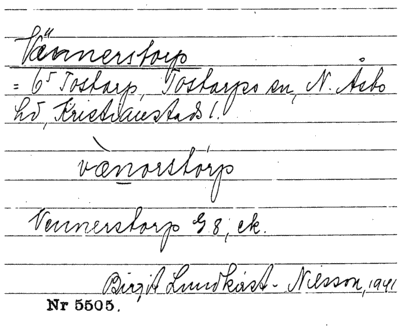 Vännerstorp
= 6⁵ Tostarp, Tostarps sn, N. Åsbo
hd, Kristianstads l.
vä̀norstórp
Vennerstorp G 8, ek.
Birgit Lundkvist - Nilsson, 1941
Nr 5505.